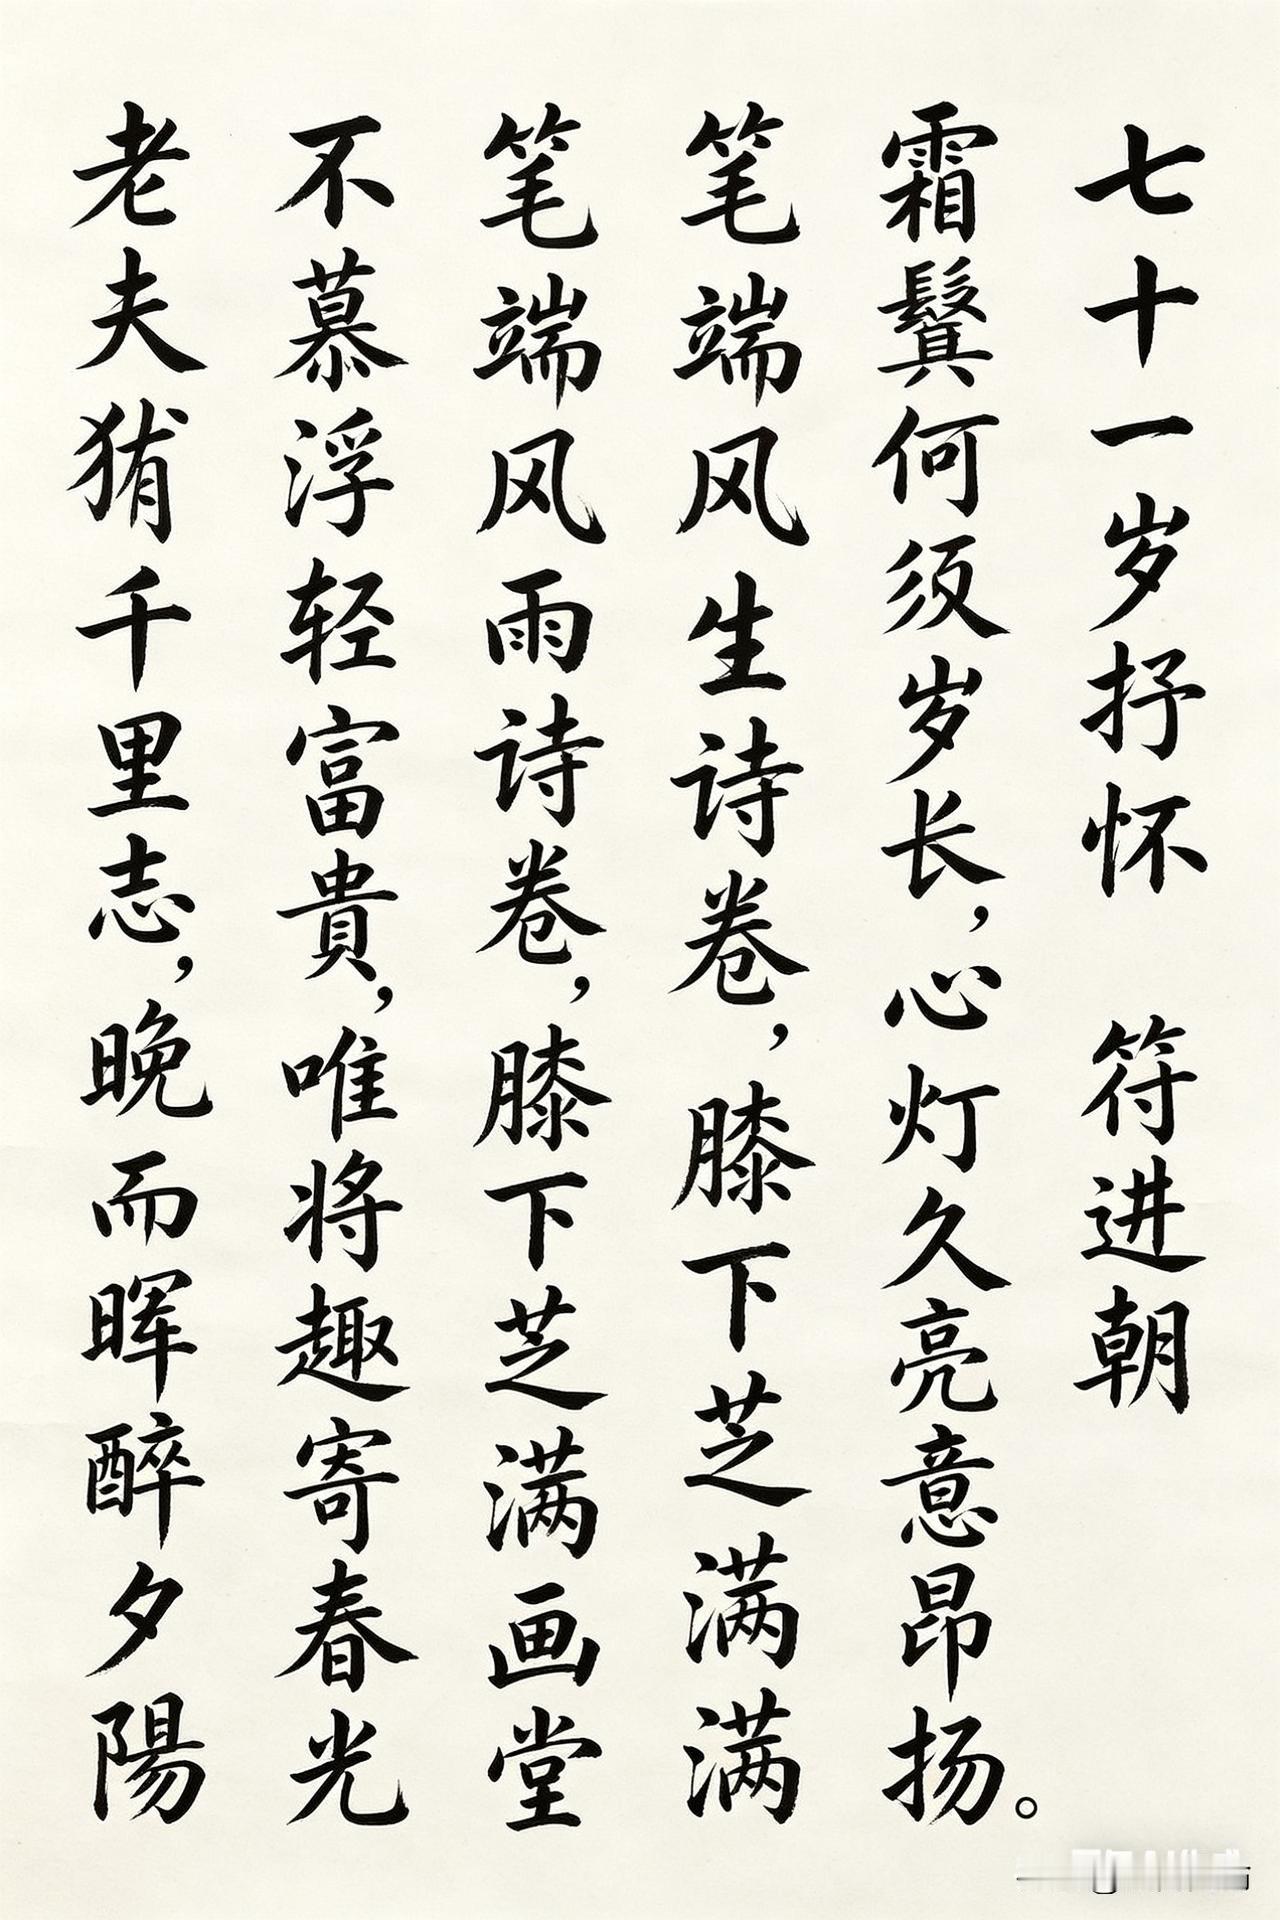 七十一岁抒怀 符进朝
霜鬓何须岁长，心灯久亮意昂扬。
笔端风生诗卷，膝下芝满满
笔端风雨诗卷，膝下芝满画堂
不慕浮轻富貴，唯将趣寄春光
老夫猶千里志，晚而晖醉夕陽